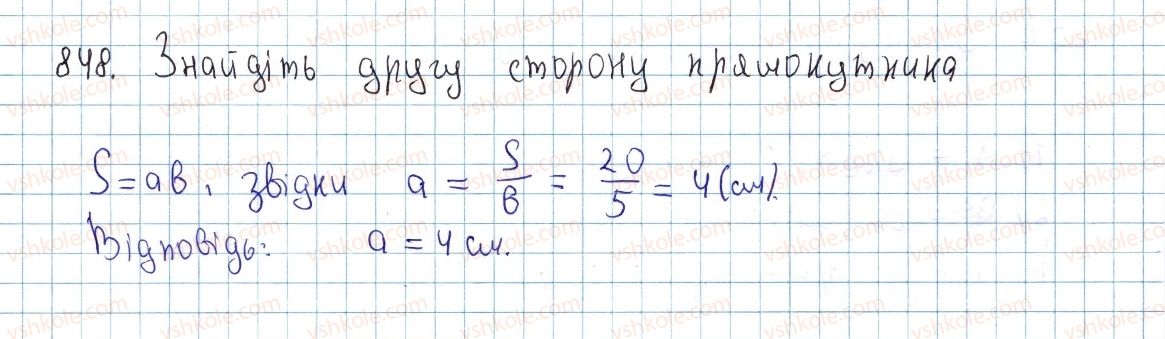 848. Знайдіть другу сторону прямокутника
S = ab, звідки a = S/b = 20/5 = 4 (см).
Відповідь: a = 4 см.